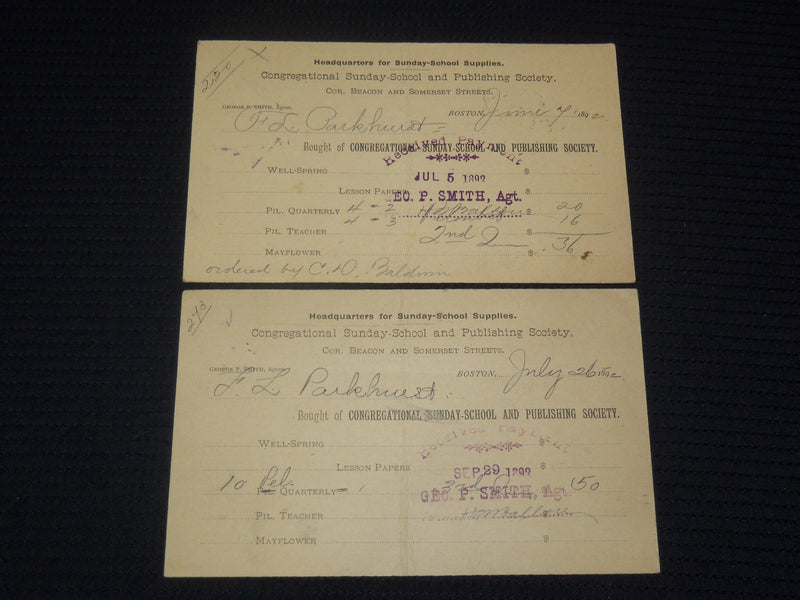 220 X
Headquarters for Sunday-School Supplies.
Congregational Sunday-School and Publishing Society,
Cor. Beacon and Somerset Streets.
George P. Smith, Agent.
BOSTON, June 7 1892
F L Parkhurst
Bought of CONGREGATIONAL SUNDAY-SCHOOL AND PUBLISHING SOCIETY.
Received Payment
Well-Spring $
JUL 5 1892
Lesson Papers $
GEO. P. SMITH, Agt.
Pil. Quarterly 4 - 2 $ 20
4 - 3 16
Pil. Teacher 2nd Q $ .36
Mayflower $
ordered by C. D. Baldwin
273
Headquarters for Sunday-School Supplies.
Congregational Sunday-School and Publishing Society,
Cor. Beacon and Somerset Streets.
George P. Smith, Agent.
BOSTON, July 26 1892
F. L Parkhurst.
Bought of CONGREGATIONAL SUNDAY-SCHOOL AND PUBLISHING SOCIETY.
Received Payment
Well-Spring $
Lesson Papers $
SEP 29 1892
10 Pil. Quarterly - 1 3rd $ 50
GEO. P. SMITH, Agt.
Pil. Teacher $
Mayflower $